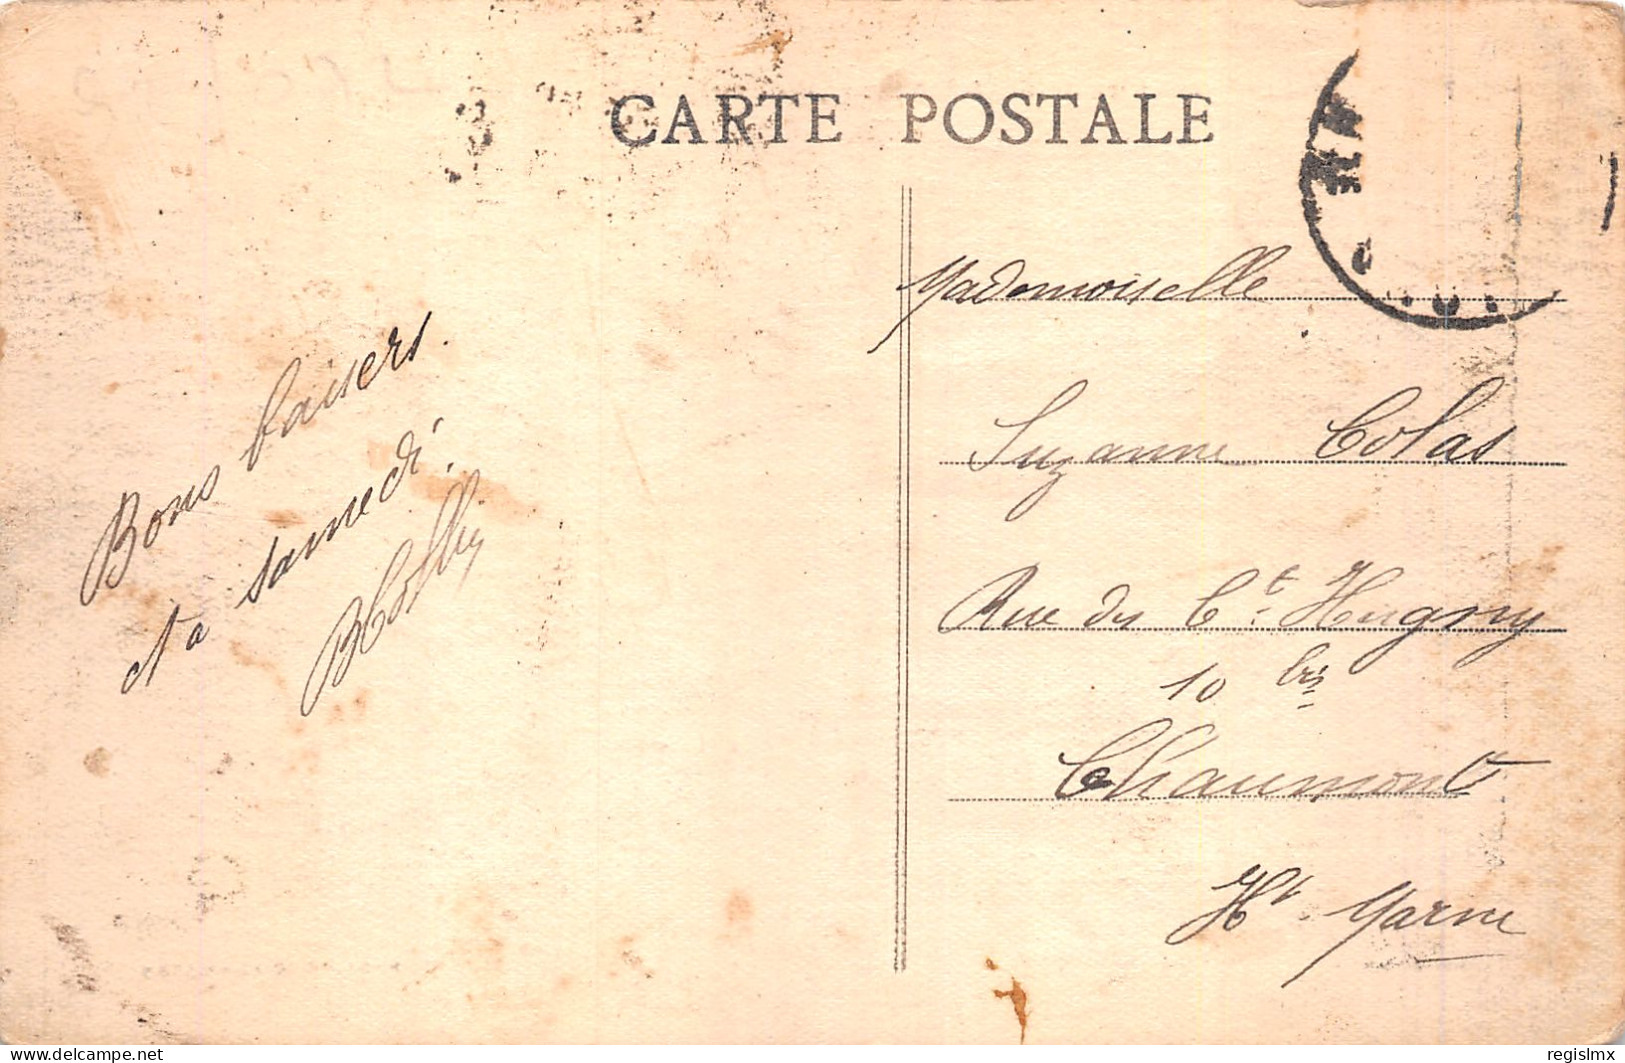 CARTE POSTALE
Bons baisers.
et a samedi.
Mademoiselle
Suzanne Colas
Rue du Ct. Hugny
10 bis
Chaumont
Hte Marne
www.delcampe.net
regislmx